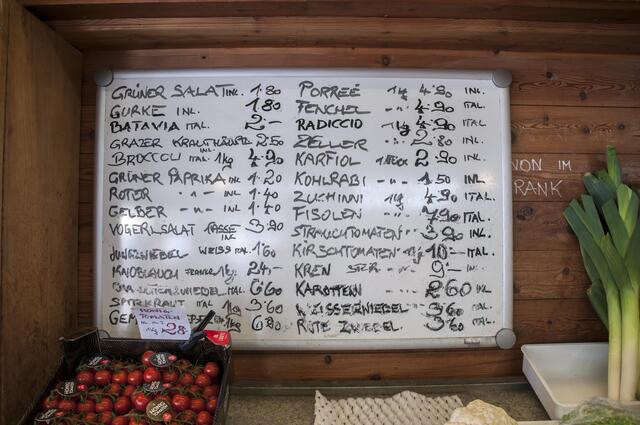 GRÜNER SALAT INL. 1·80
GURKE INL. 1·80
BATAVIA ITAL. 2·-
GRAZER KRAUTHÄUPTL INL. 2·50
BROCCOLI ITAL. 1kg 4·90
GRÜNER PAPRIKA INL. 1·20
ROTER " - " - INL 1·40
GELBER " - " - INL 1·40
VOGERLSALAT TASSE INL 3·90
JUNGZWIEBEL WEISS ITAL. 1·60
KNOBLAUCH 1kg 24·-
ITAL 6·60
SPITZKRAUT ITAL 1kg 3·60
1kg 6·80
PORREÉ 1kg 4·80 INL.
FENCHEL - " - 4·90 ITAL.
RADICCIO 1kg 4·90 ITAL.
ZELLER - " - 2·80 INL.
KARFIOL 1 STÜCK 2·90 INL.
KOHLRABI - " - 1·50 INL.
ZUCHINNI 1kg 4·90 ITAL.
FISOLEN - " - 7·90 ITAL.
STRAUCHTOMATEN - " - 3·90 INL.
KIRSCHTOMATEN 1kg 10·- ITAL.
KREN 9·- INL.
KAROTTEN 2·60 INL.
WEISSERZWIEBEL 3·60 ITAL.
ROTE ZWIEBEL 3·60 ITAL.
NON IM
RANK
HONIG
TOMATEN
1kg 28.-